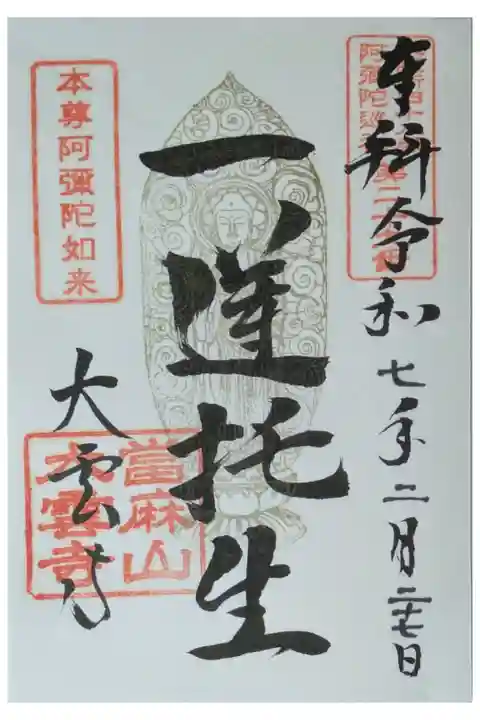 奉拝 令和七年二月二十七日
阿彌陀
一蓮托生
本尊阿彌陀如来
大雲寺
當麻山
大雲寺